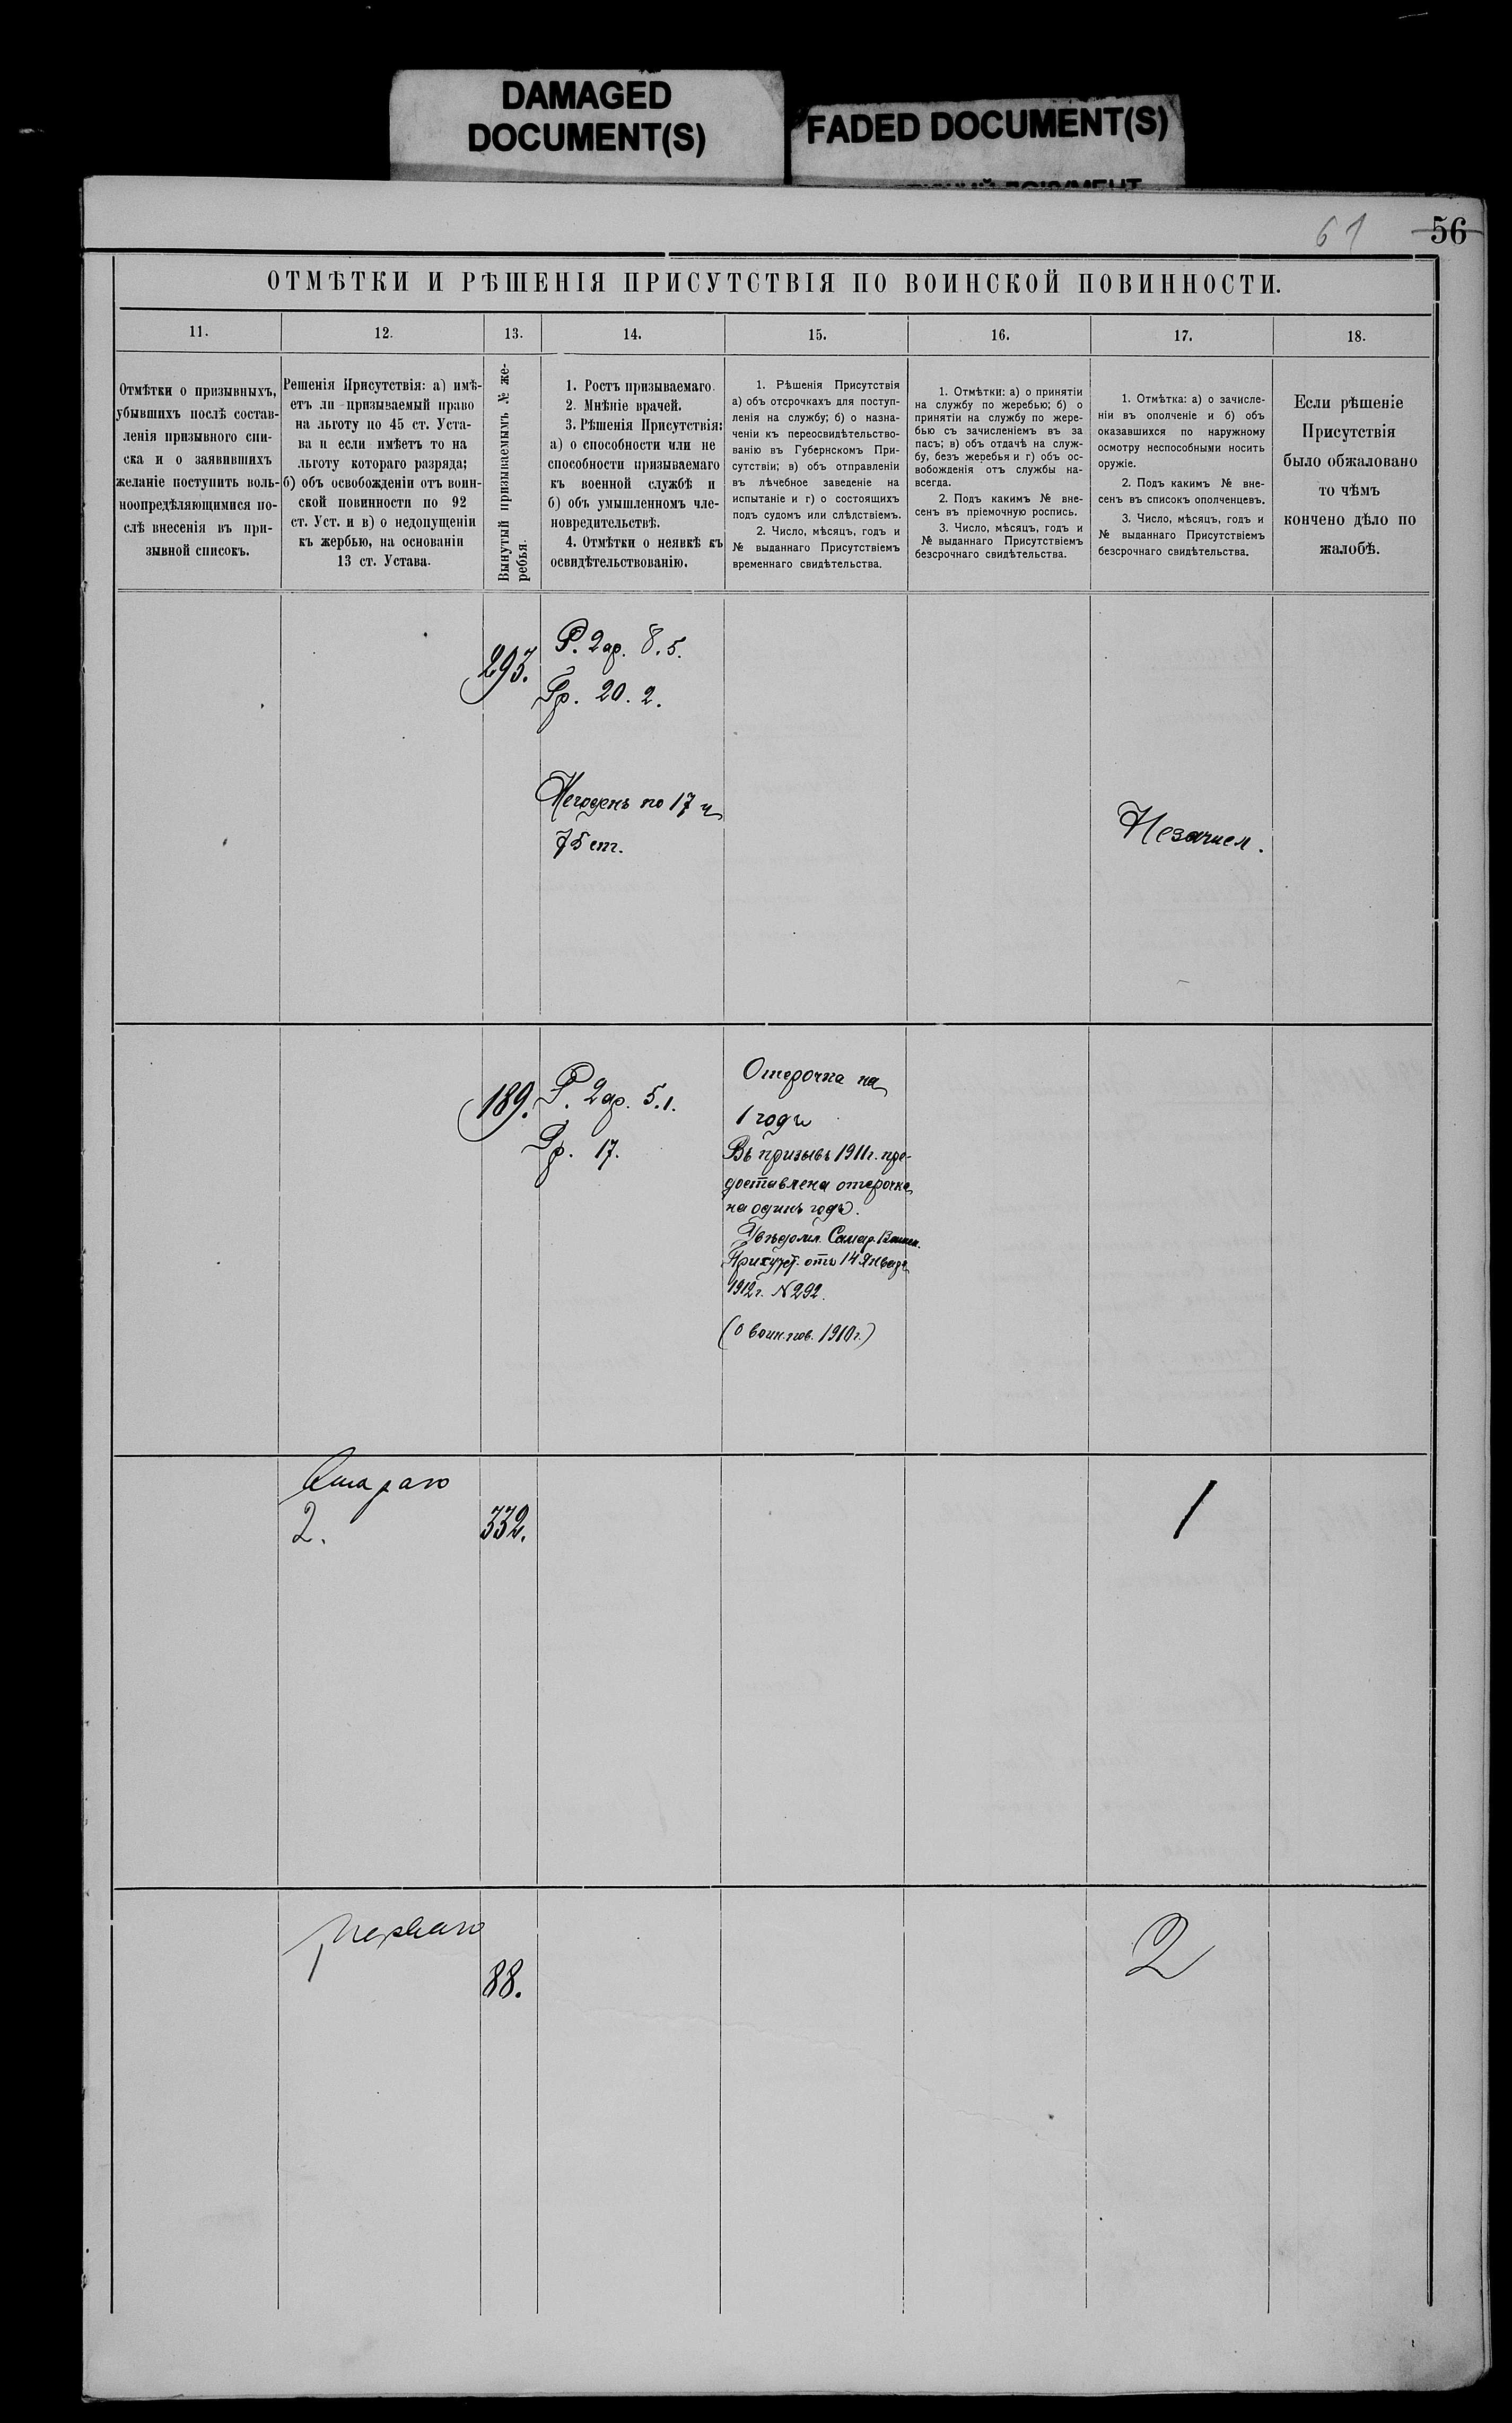 DAMAGED
DOCUMENT(S)
FADED DOCUMENT(S)
61
56
ОТМѢТКИ И РѢШЕНІЯ ПРИСУТСТВІЯ ПО ВОИНСКОЙ ПОВИННОСТИ.
11.
12.
13.
14.
15.
16.
17.
18.
Отмѣтки о призывныхъ,
убывшихъ послѣ состав-
ленія призывного спи-
ска и о заявившихъ
желаніе поступить воль-
ноопредѣляющимися по-
слѣ внесенія въ при-
зывной списокъ.
Решенія Присутствія: а) имѣ-
етъ ли призываемый право
на льготу по 45 ст. Уста-
ва и если имѣетъ то на
льготу котораго разряда;
б) объ освобожденіи отъ воин-
ской повинности по 92
ст. Уст. и в) о недопущеніи
къ жербью, на основаніи
13 ст. Устава.
Вынутый призываемымъ № же-
ребья.
1. Ростъ призываемаго.
2. Мнѣніе врачей.
3. Рѣшенія Присутствія:
а) о способности или не
способности призываемаго
къ военной службѣ и
б) объ умышленномъ чле-
новредительствѣ.
4. Отмѣтки о неявкѣ къ
освидѣтельствованію.
1. Рѣшенія Присутствія
а) объ отсрочкахъ для поступ-
ленія на службу; б) о назна-
ченіи къ переосвидѣтельство-
ванію въ Губернскомъ При-
сутствіи; в) объ отправленіи
въ лѣчебное заведеніе на
испытаніе и г) о состоящихъ
подъ судомъ или слѣдствіемъ.
2. Число, мѣсяцъ, годъ и
№ выданнаго Присутствіемъ
временнаго свидѣтельства.
1. Отмѣтки: а) о принятіи
на службу по жеребью; б) о
принятіи на службу по жере-
бью съ зачисленіемъ въ за
пасъ; в) объ отдачѣ на служ-
бу, безъ жеребья и г) объ ос-
вобожденія отъ службы на-
всегда.
2. Подъ какимъ № вне-
сенъ въ пріемочную роспись.
3. Число, мѣсяцъ, годъ и
№ выданнаго Присутствіемъ
безсрочнаго свидѣтельства.
1. Отмѣтка: а) о зачисле-
ніи въ ополченіе и б) объ
оказавшихся по наружному
осмотру неспособными носить
оружіе.
2. Подъ какимъ № вне-
сенъ въ списокъ ополченцевъ.
3. Число, мѣсяцъ, годъ и
№ выданнаго Присутствіемъ
безсрочнаго свидѣтельства.
Если рѣшеніе
Присутствія
было обжаловано
то чѣмъ
кончено дѣло по
жалобѣ.
293.
Р. 2ар. 8.5.
Гр. 20.2.
Негоденъ по 17 и
75 ст.
Незачисл.
189.
Р. 2ар. 5.1.
Гр. 17.
Отсрочка на
1 годъ
Въ призывъ 1911г. пре-
доставлена отсрочка
на одинъ годъ.
Увѣдомл. Самар. Воинск.
Присутст. отъ 14 Января
1912г. № 292.
(О воин. пов. 1910г.)
Втараго
2.
332.
1
перваго
88.
2